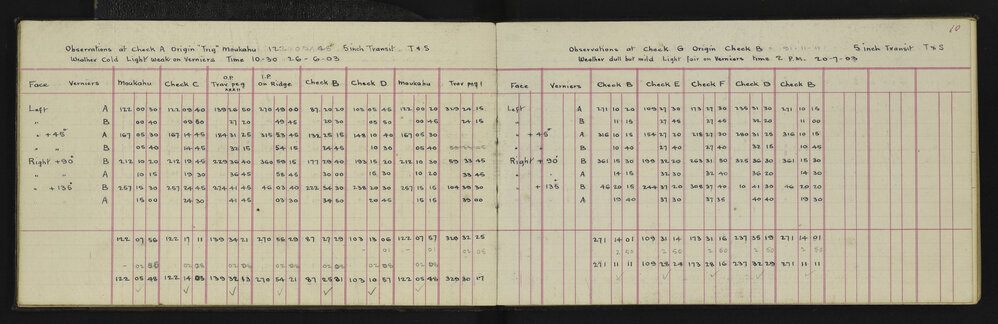 10
Observations at Check A Origin "Trig" Moukahu 5 inch Transit T & S
Weather Cold Light weak on Verniers Time 10-30 26-6-03
Face Verniers Moukahu Check C O.P Trav peg I.P. on Ridge Check B Check D Moukahu Trav peg 1
Left A 122 00 30 122 09 40 139 26 50 270 49 00 87 20 20 103 05 45 122 00 20 329 24 15
" B 00 40 09 50 27 20 49 45 20 30 05 50 00 45 24 15
" +45° A 167 05 30 167 14 45 184 31 25 315 53 45 132 25 15 148 10 40 167 05 30
" " B 05 40 14 45 32 15 54 15 24 45 10 30
Right +90° B 212 10 20 212 19 45 229 36 40 360 59 15 177 29 40 193 15 20 212 10 30 59 33 45
" A 10 15 19 30 36 45 58 45 30 00 15 30 10 20 33 45
" +135° B 257 15 30 257 24 45 274 41 45 46 03 40 222 34 30 238 20 30 257 15 15 104 39 30
A 15 00 24 30 41 45 03 30 34 50 20 45 15 15 39 00
122 07 56 122 17 11 139 34 21 270 56 29 87 27 29 103 13 06 122 07 57 329 32 25
122 05 48 122 14 03 139 32 13 270 54 21 87 25 21 103 10 57 122 05 48 329 30 17
Observations at Check G Origin Check B 5 inch Transit T & S
Weather dull but mild Light fair on Verniers Time 2 P.M. 20-7-03
Face Verniers Check B Check E Check F Check D Check B
Left A 271 10 20 109 27 30 173 27 30 235 31 30 271 10 15
" B 11 15 27 45 27 45 32 20 11 00
" +45° A 316 10 15 154 27 20 218 27 30 280 31 25 316 10 15
" B 10 40 27 40 27 40 32 15 10 45
Right +90° B 361 15 30 199 32 20 263 31 30 325 36 30 361 15 30
" A 14 15 32 30 32 40 36 20 14 30
" +135° B 46 20 15 244 37 20 308 37 40 10 41 30 46 20 20
" A 19 40 37 30 37 35 40 40 19 30
271 14 01 109 31 14 173 31 16 237 35 19 271 14 01
2 50 2 50 2 50 2 50 2 50
271 11 11 109 28 24 173 28 16 237 32 29 271 11 11